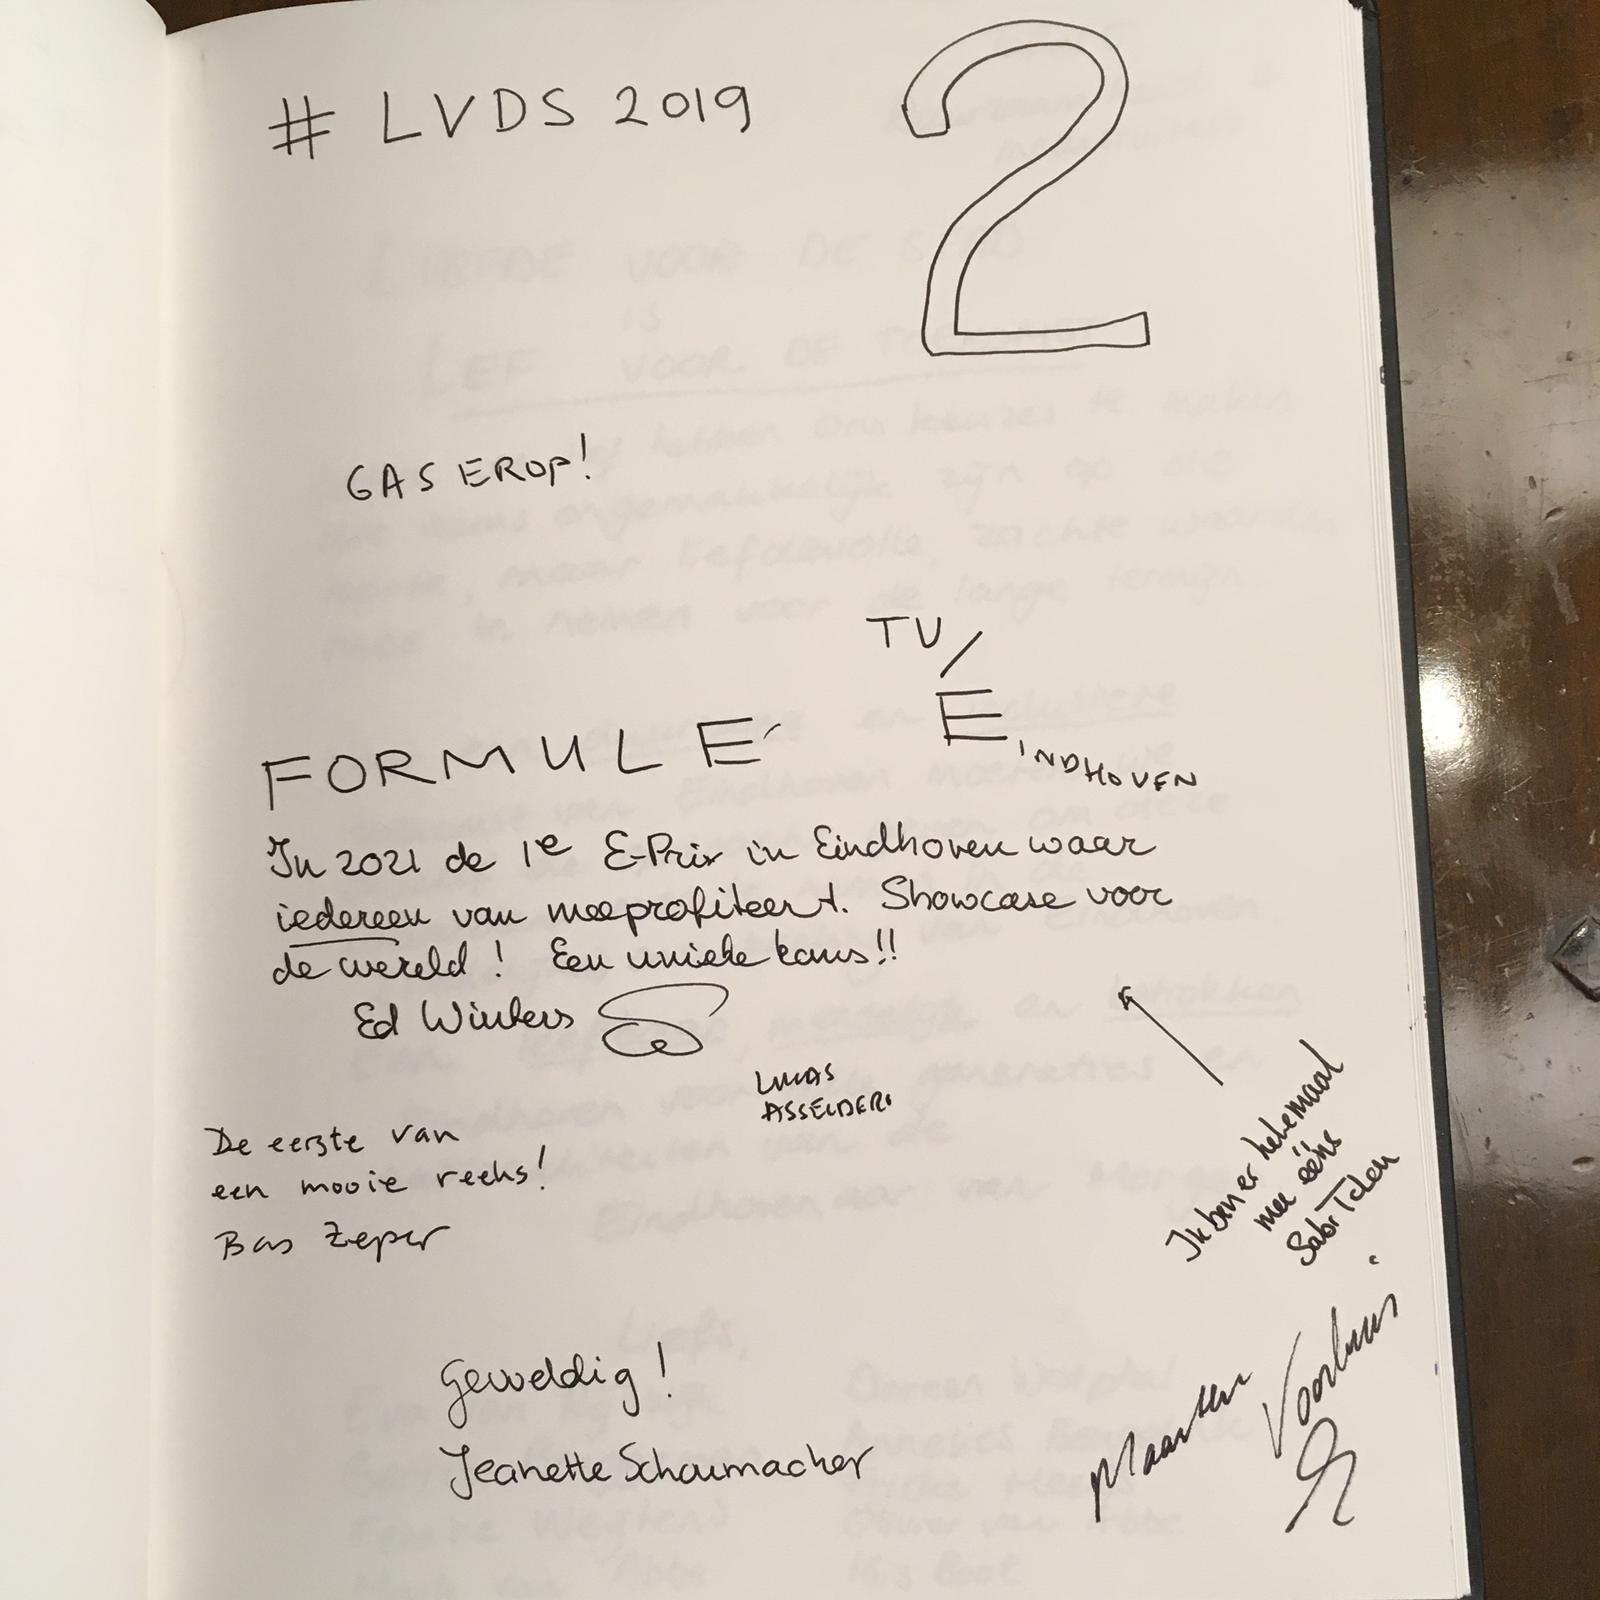 # LVDS 2019
2
GAS EROP!
TU/
E
INDHOVEN
FORMULE
In 2021 de 1e E-Prix in Eindhoven waar
iedereen van meeprofiteert. Showcase voor
de wereld! Een unieke kans!!
Ed Winters
LUCAS
De eerste van
een mooie reeks!
Bas Zeper
Ik ben er helemaal
mee ééns
Geweldig!
Jeanette Schoumacher
Maarten
Voorhuis